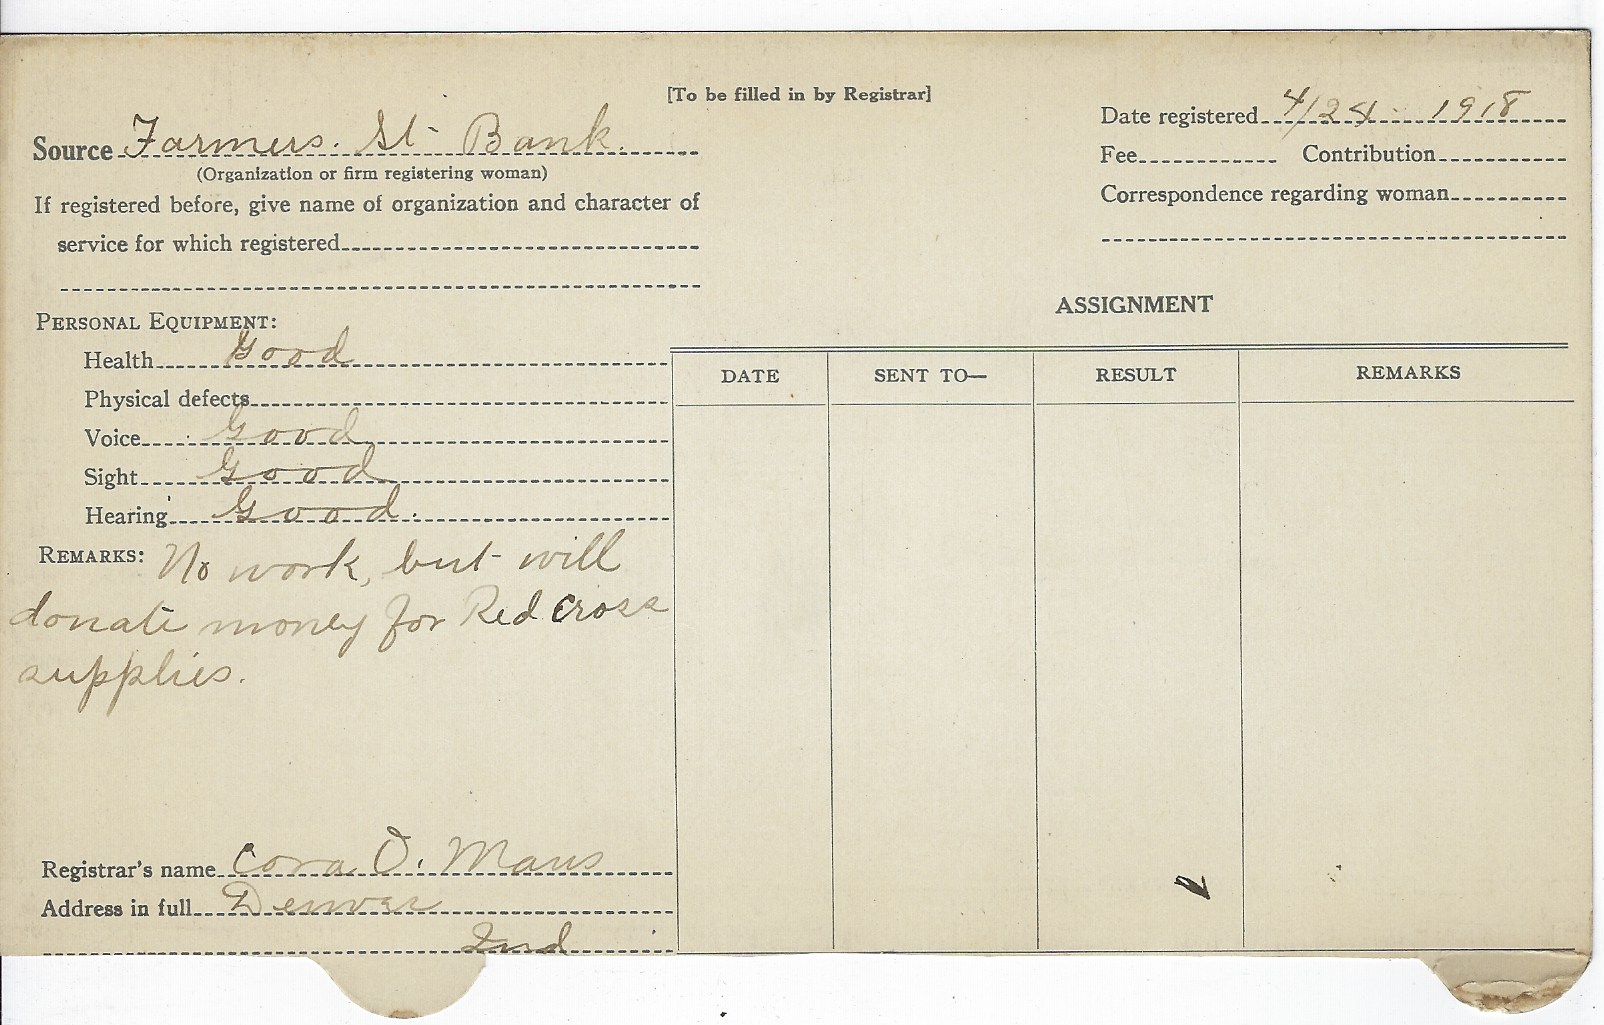 [To be filled in by Registrar]
Source Farmers. St- Bank.
(Organization or firm registering woman)
If registered before, give name of organization and character of
service for which registered
Date registered 4/24 - 1918
Fee Contribution
Correspondence regarding woman
PERSONAL EQUIPMENT:
Health Good
Physical defects
Voice Good
Sight Good
Hearing Good.
REMARKS: No work, but will
donate money for Red Cross
supplies.
Registrar's name Cora O. Maus
Address in full Denver
Ind
ASSIGNMENT
DATE SENT TO— RESULT REMARKS